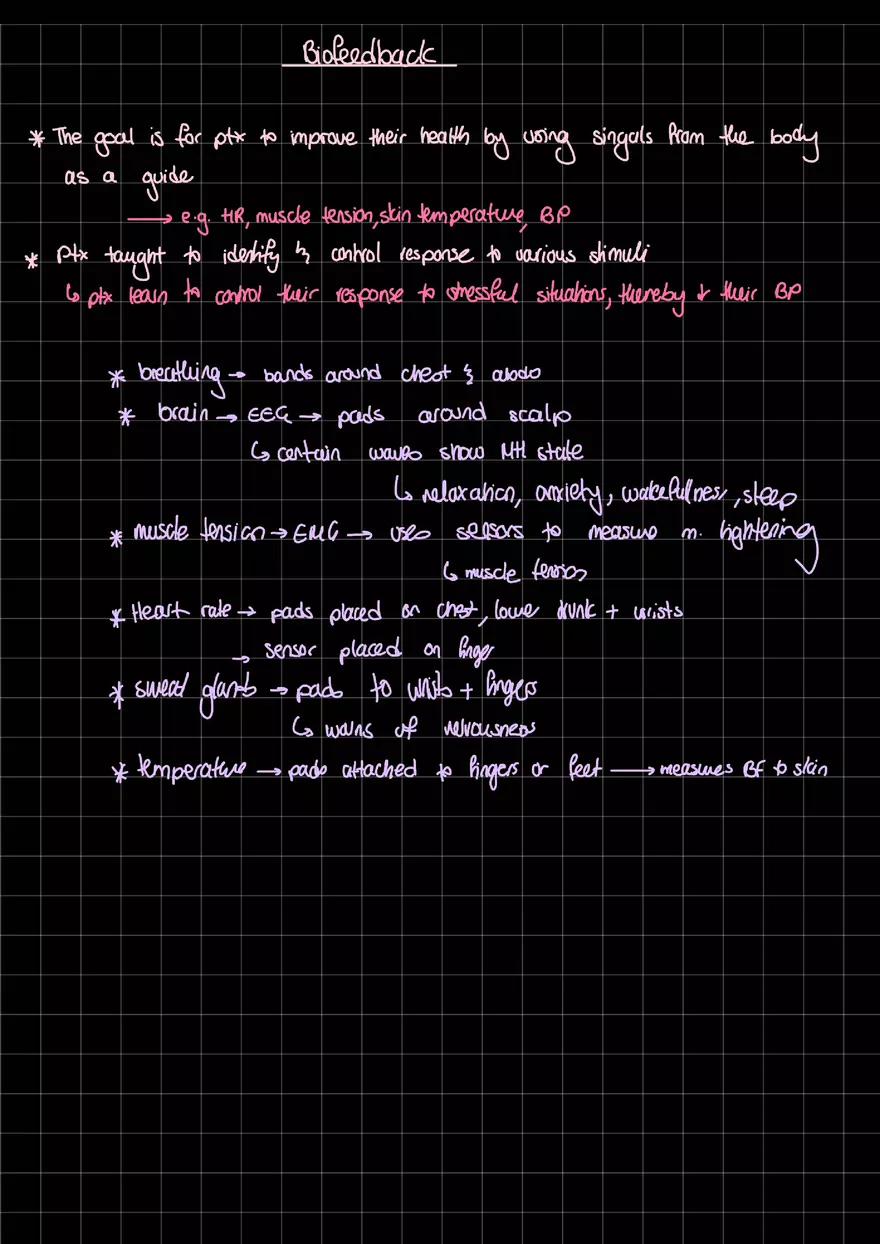 Biofeedback
* The goal is for ptx to improve their health by using singals from the body
as a guide
→ e.g. HR, muscle tension, skin temperature, BP
* Ptx taught to identify & control response to various stimuli
↳ ptx learn to control their response to stressful situations, thereby ↓ their BP
* breathing → bands around chest & abdo
* brain → EEG → pads around scalp
↳ certain waves show MH state
↳ relaxation, anxiety, wakefulness, sleep
* muscle tension → EMG → uses sensors to measure m. tightening
↳ muscle tension
* Heart rate → pads placed on chest, lower trunk + wrists
→ sensor placed on finger
* sweat glands → pads to wrists + fingers
↳ warns of nervousness
* temperature → pads attached to fingers or feet → measures BF to skin